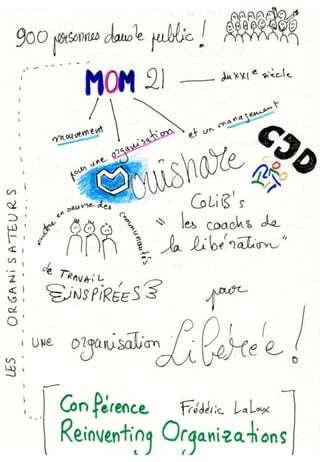 900 personnes dans le public !
MOM 21 — du XXIe siècle
mouvement
pour une organisation
et un management
CJD
Ouishare
mettre en oeuvre des communautés
de TRAVAIL
INSPIRÉES
CoLiB's
"les coachs de
la libération"
pour
UNE organisation Libérée !
LES ORGANISATEURS
Conférence Frédéric Laloux
Reinventing Organizations